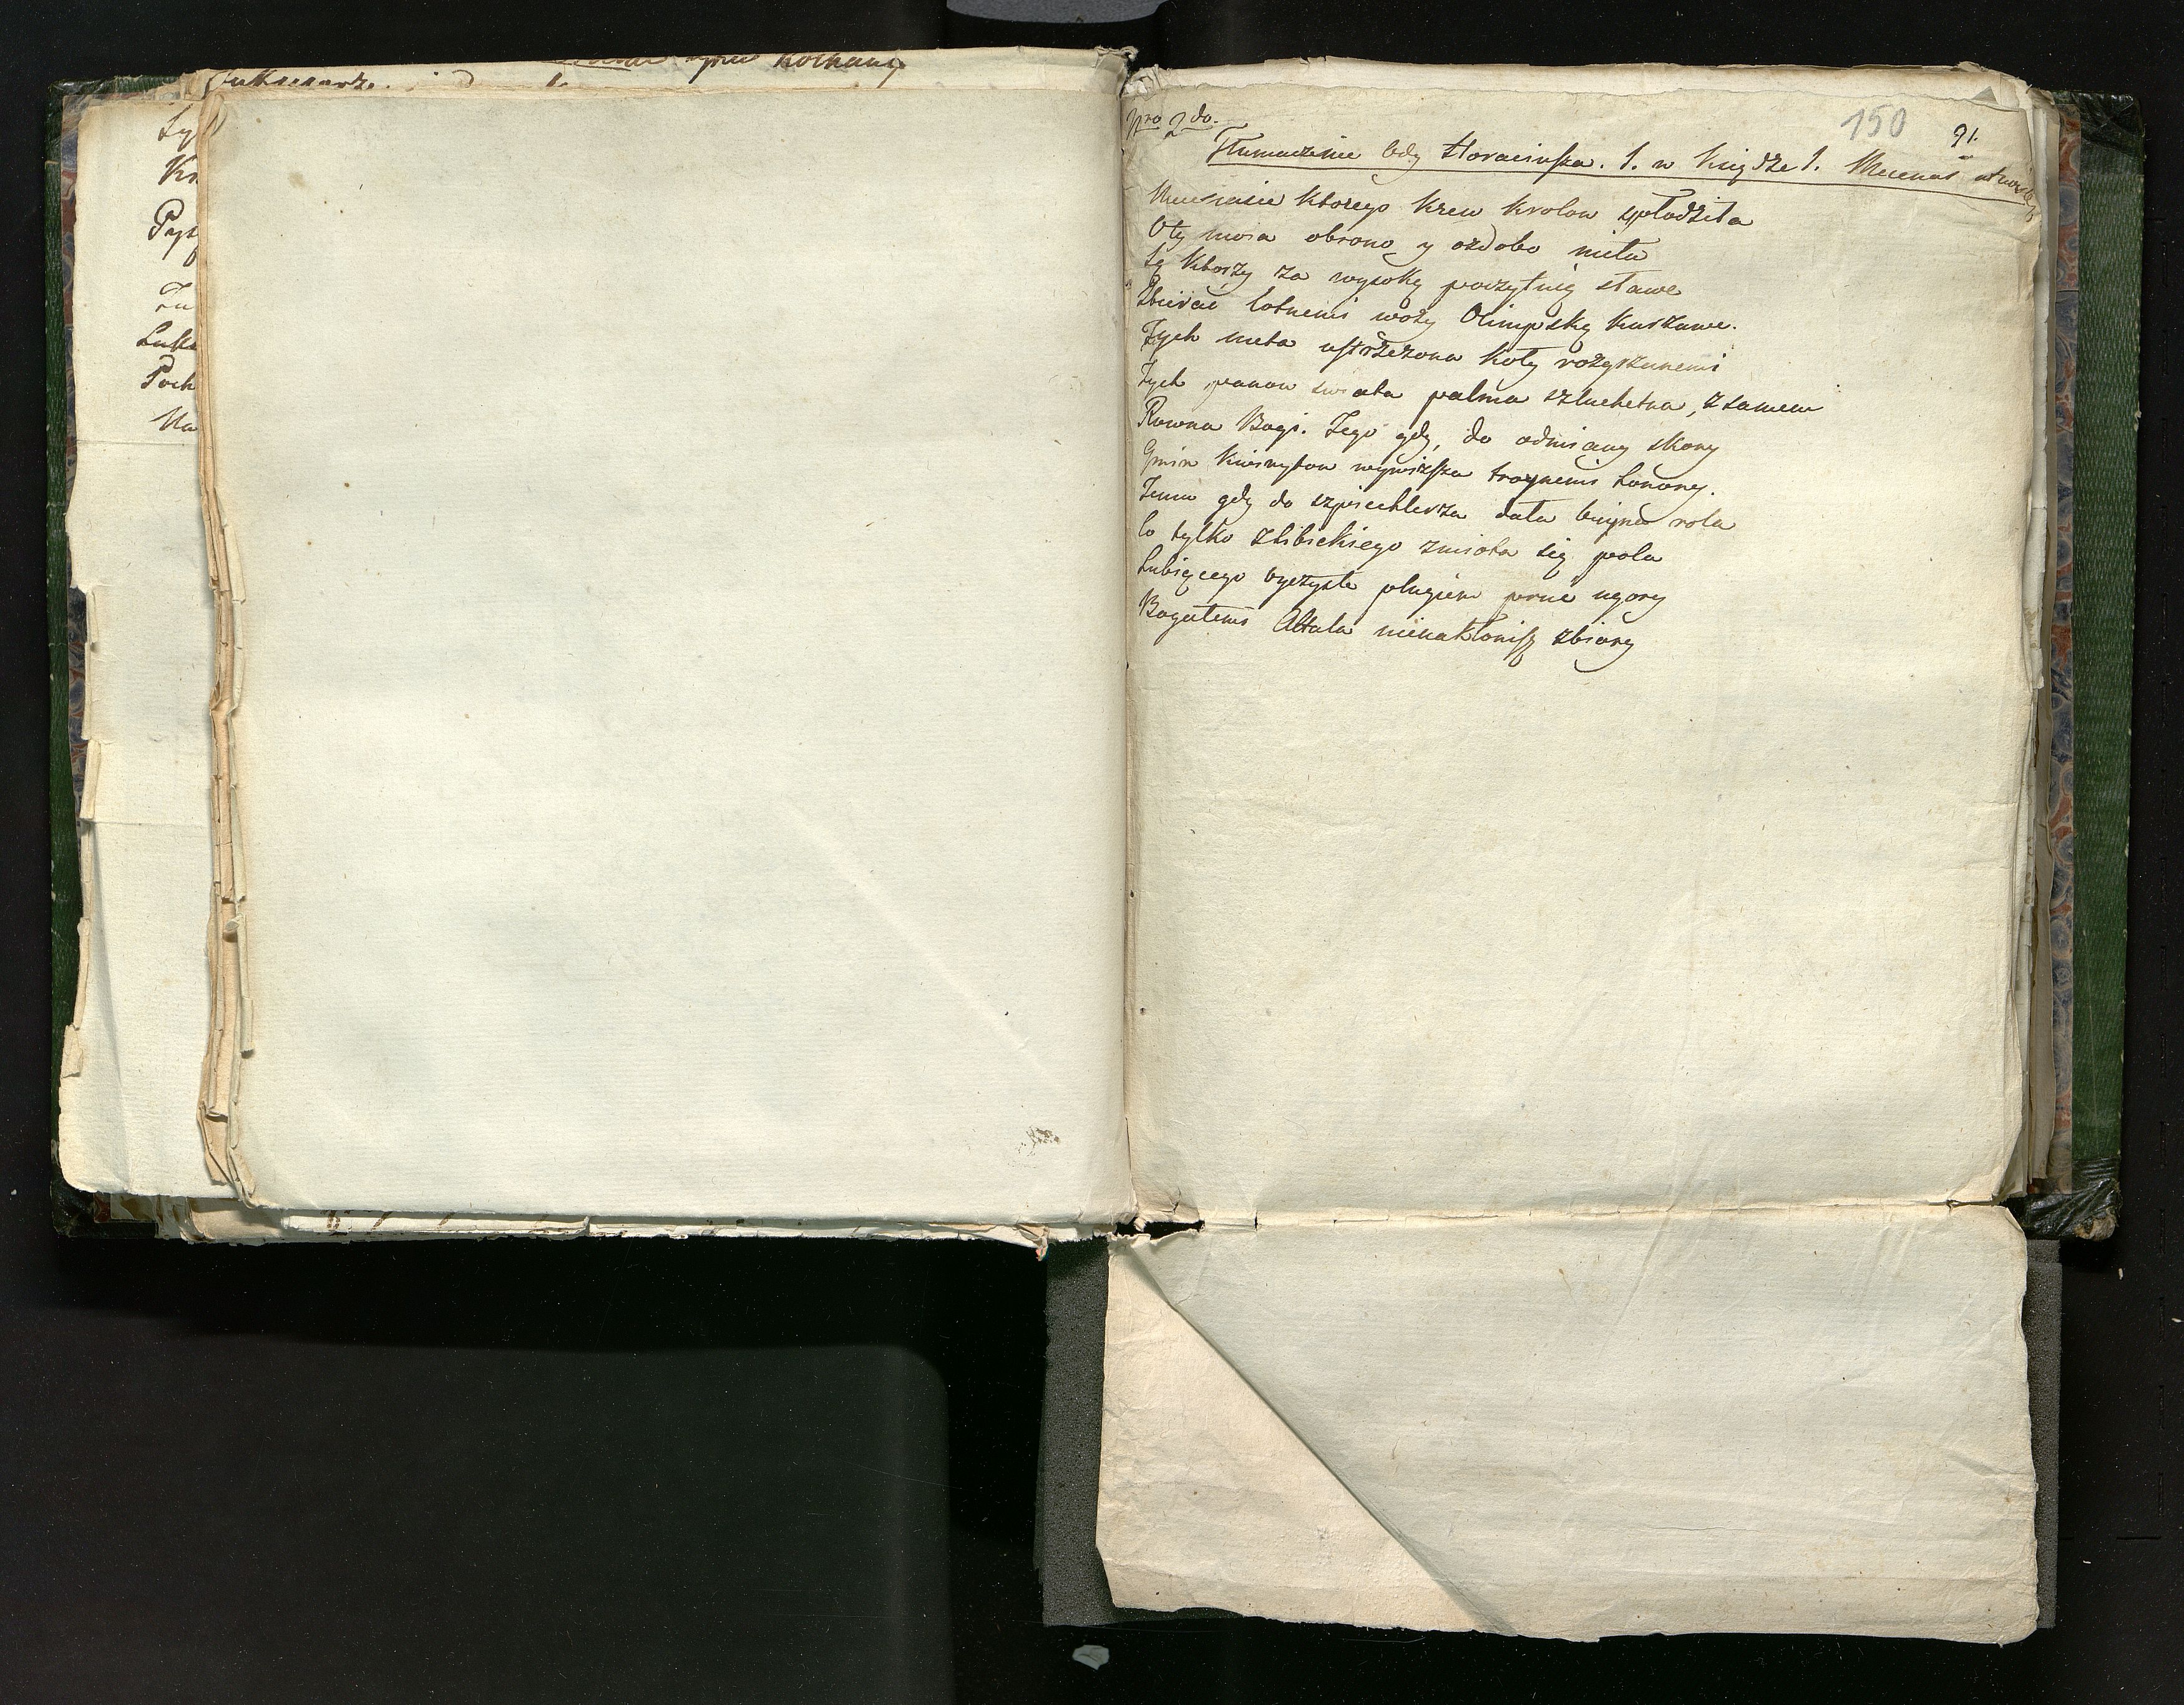 Łukaszowi
Ly
Kr
Pys
Lu
Łuka
Poch
Na
Nro 2do.
150
91.
Tłumaczenie Ody Horaciusza. 1. w Księdze 1. Mecenas atavis
Mecenasie ktorego krew krolow spłodziła
O ty moia obrono y ozdobo miła
Są ktorzy za wysoką poczytuią sławe
Zbierać lotnemi wozy Olimpską kurzawe.
Tych meta ustrzeżona koły rozgrzanemi
Tych panow swiata palma szlachetna, z samemi
Rowna Bogi. Tego gdy, do odmiany skory
Gmin Kwirytow wywyższa troynemi honory.
Temu gdy do szpichlerza dała buyna rola
Co tylko z libickiego zmiota się pola
Lubiącego oyczyste pługiem prue ugory
Bogatemi Attala nienakłonisz zbiory